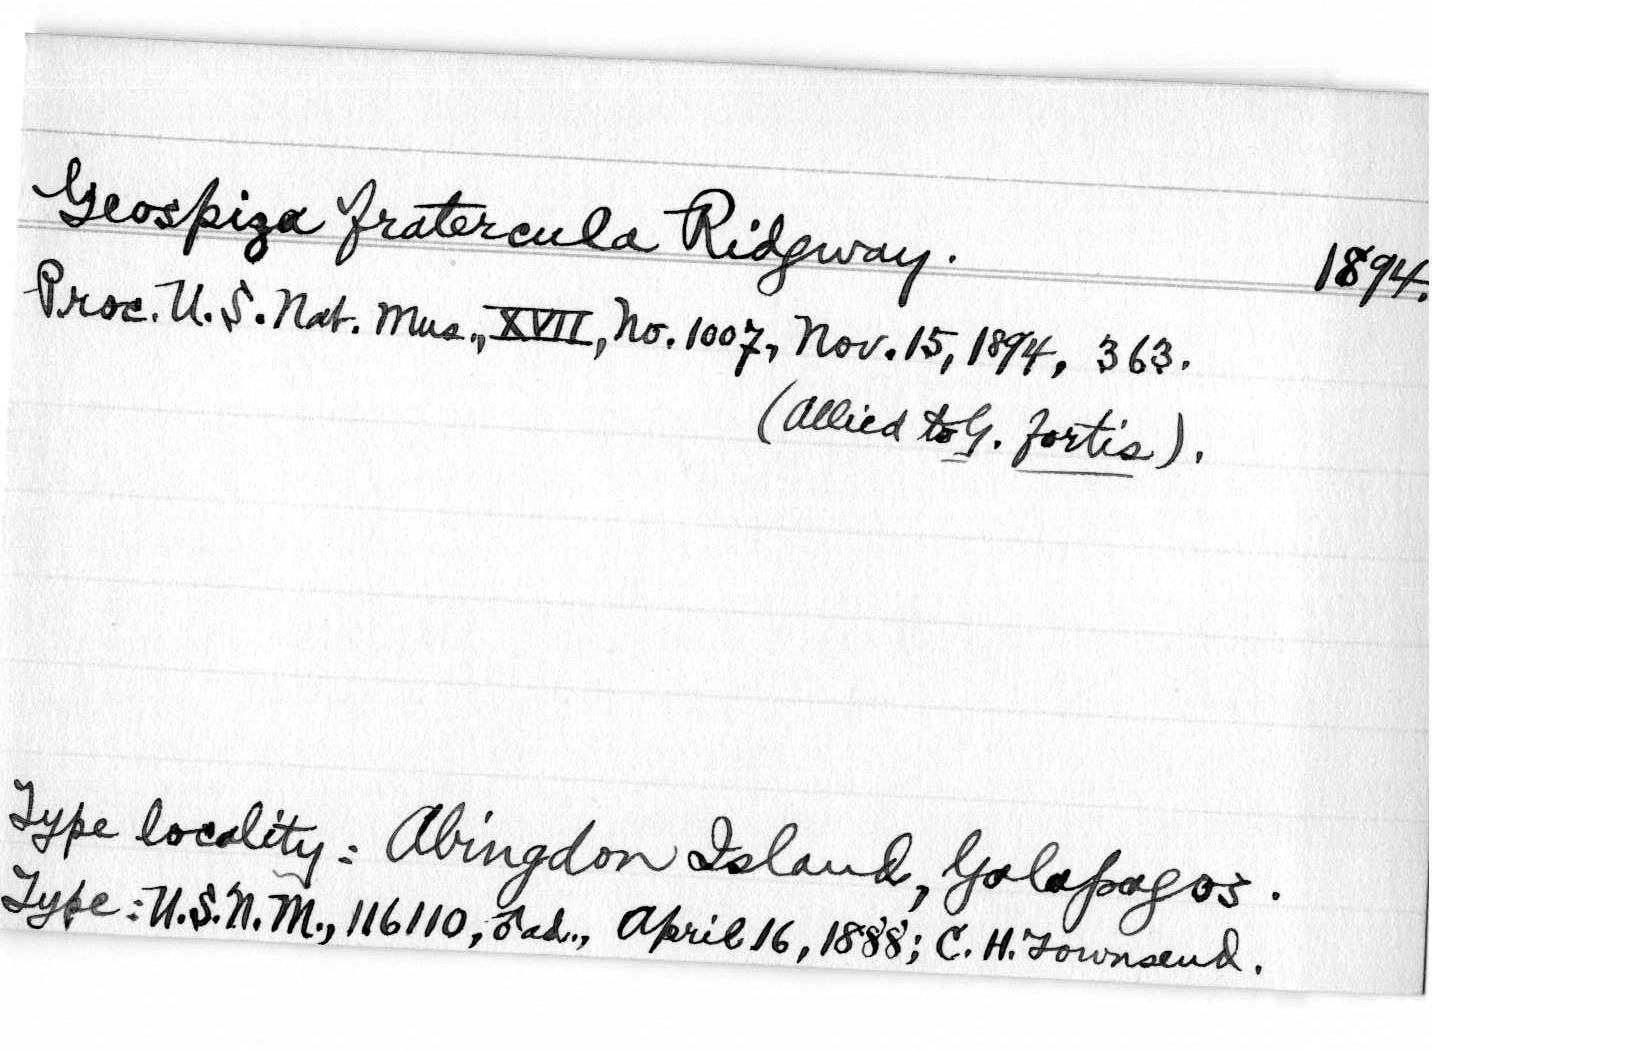 Geospiza fratercula Ridgway. 1894.
Proc. U. S. Nat. Mus., XVII, No. 1007, Nov. 15, 1894, 363.
(Allied to G. fortis).
Type locality: Abingdon Island, Galapagos.
Type: U.S.N.M., 116110, ♂ ad., April 16, 1888; C. H. Townsend.